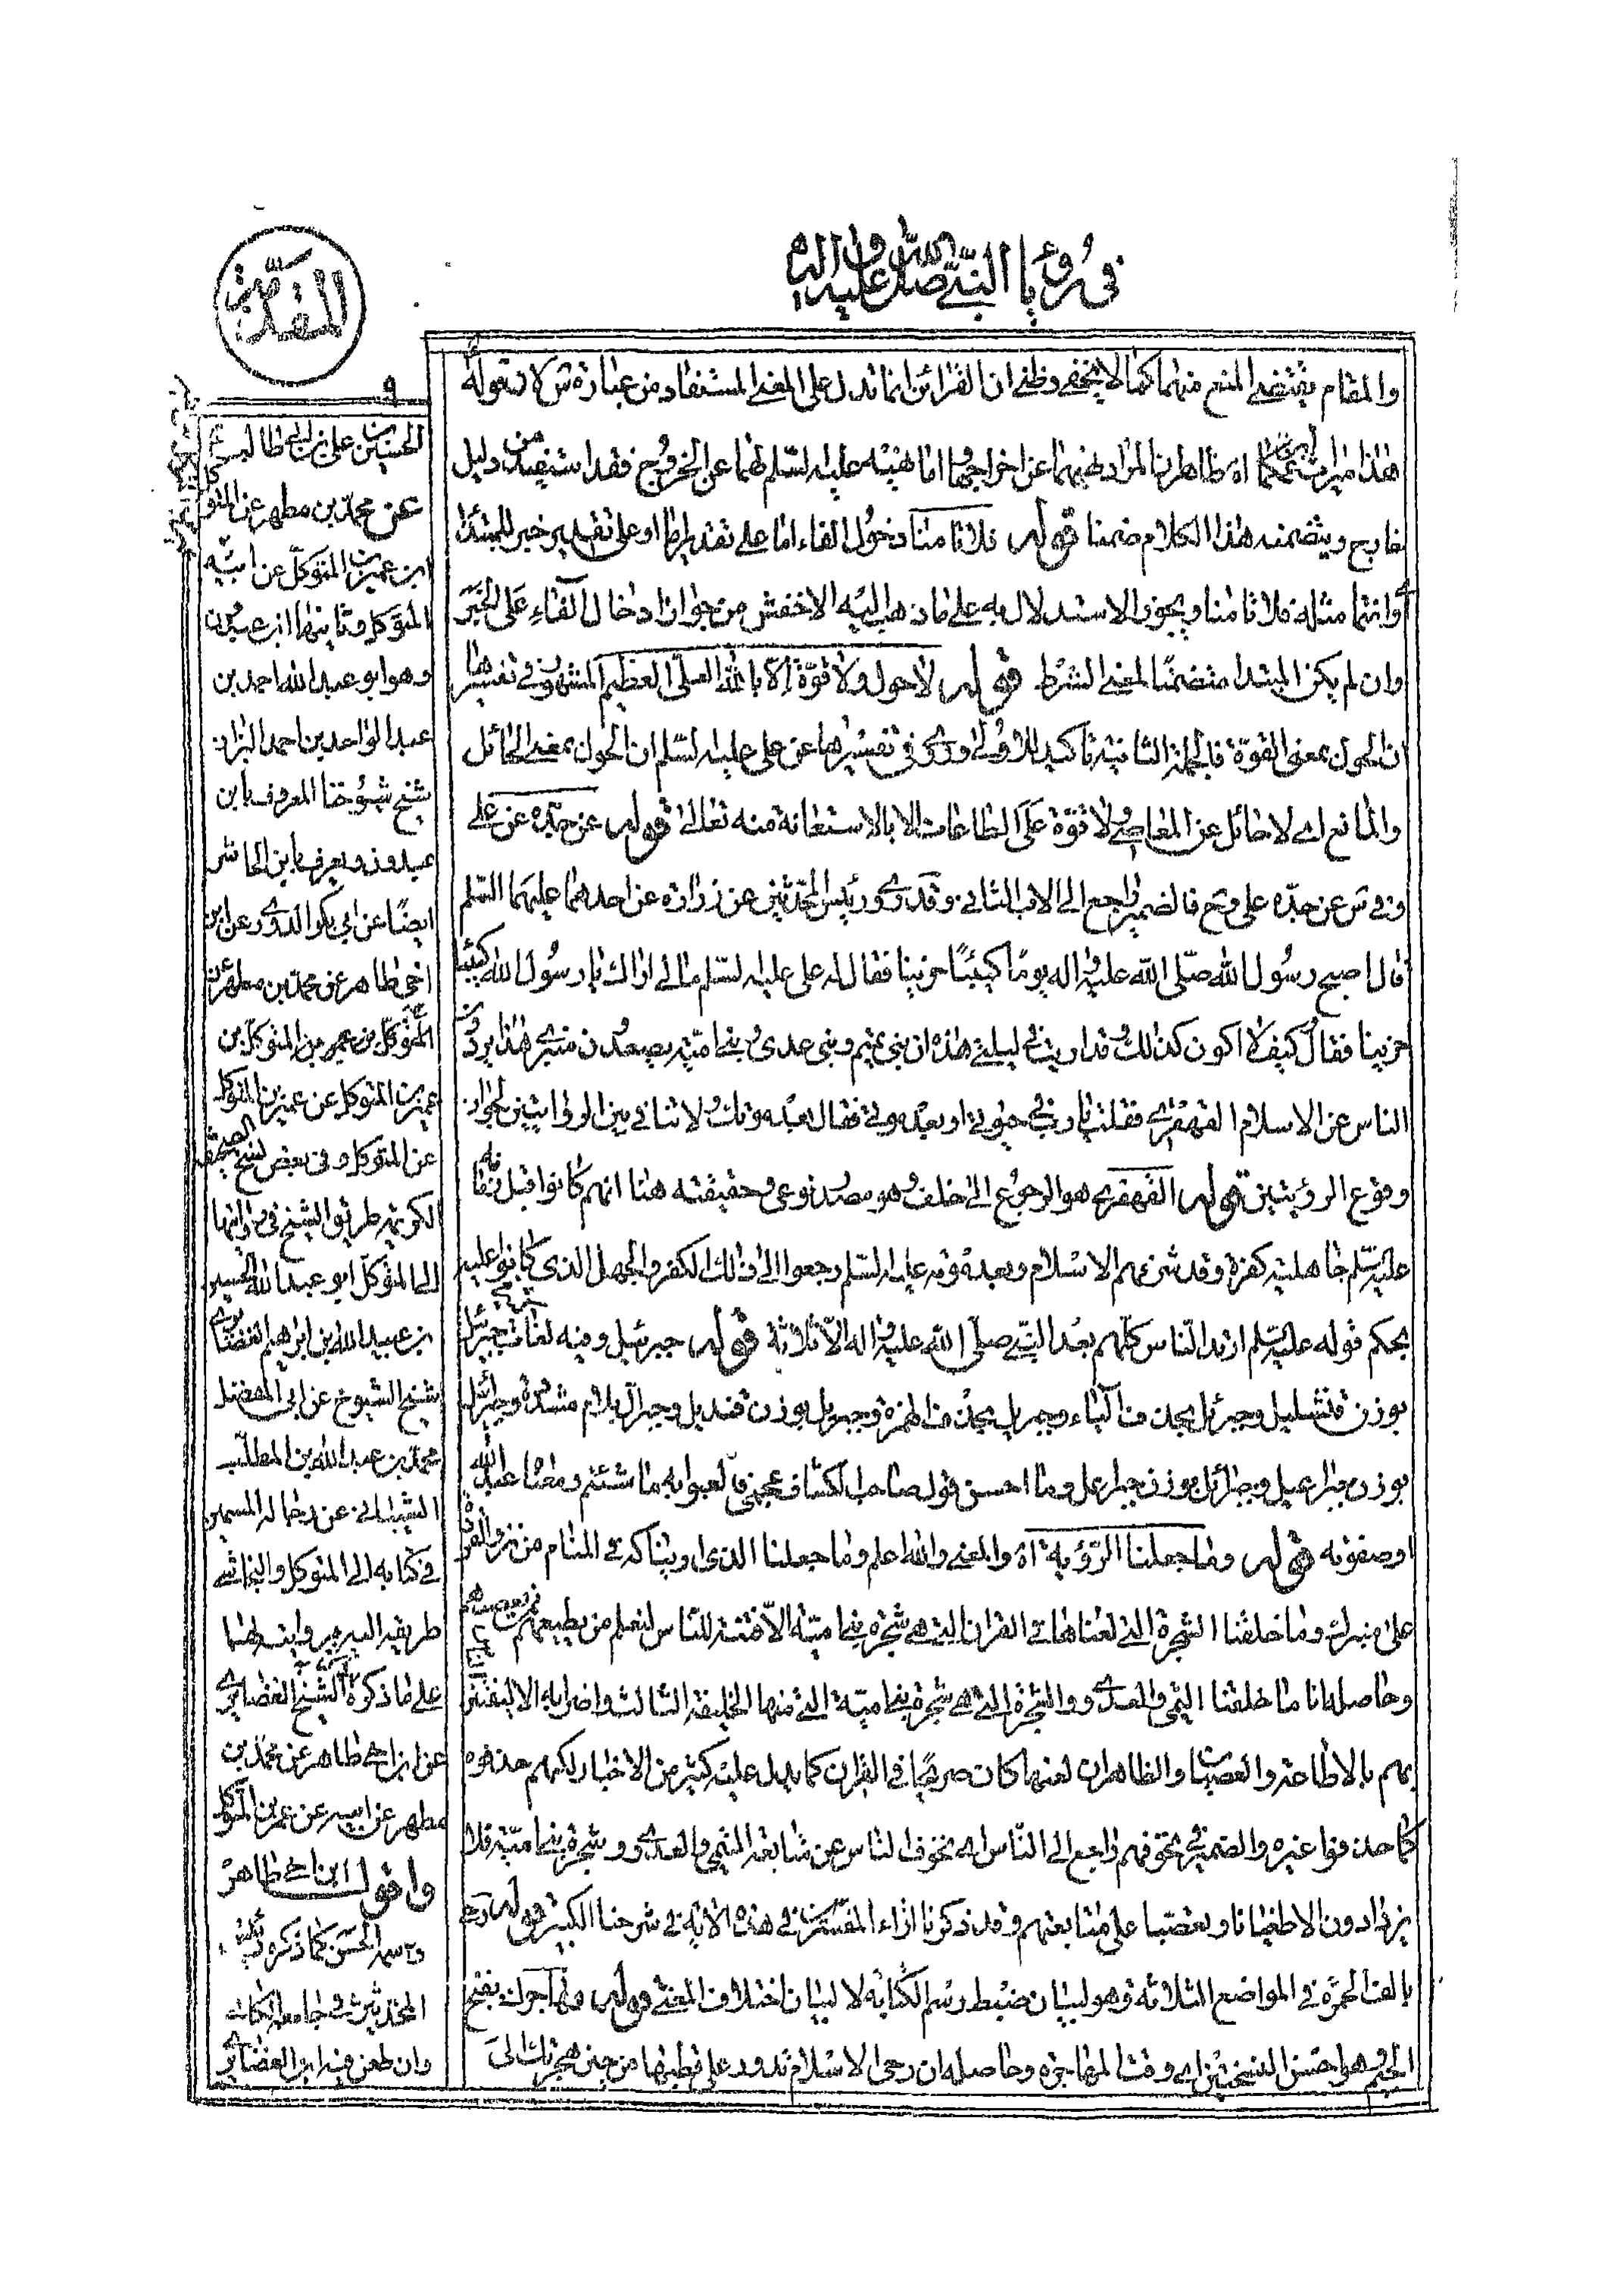 في رؤيا النبي صلى الله عليه واله
المقدمة
٩
والمقام يقتضي المنع منهما كما لا يخفى وظني ان القرائن انما تدل على المعنى المستفاد من عبارة ش لا بقوله
هذا ظاهر ان المراد نهيهما عن اخراجهما اما نهيه عليه السّلم لهما عن الخروج فقد استفيد من دليل
خارج ويتضمنه هذا الكلام ضمنا قوله فلا تامنا دخول الفاء اما على تقدير اما او على تقدير خبر للمبتدأ
وانتما مثله فلا تامنا ويجوز الاستدلال به على ما ذهب اليه الاخفش من جواز ادخال الفاء على الخبر
وان لم يكن المبتدا متضمنًا لمعنى الشرط قوله لا حول ولا قوّة الّا بالله العلىّ العظيم المشهور في تفسيرها
ان الحول بمعنى القوّة فالجملة الثانية تاكيد للاولى وروى في تفسيرها عن على عليه السّلم ان الحول بمعنى الحائل
والمانع اى لا حائل عن المعاصى ولا قوّة على الطاعات الا بالاستعانة منه تعالى قوله عن جدّه عن على
وفى ش عن جدّه على وح فالضمير راجع الى الاب الثانى وقد روى رئيس المحدّثين عن زرارة عن احدهما عليهما السّلم
قال اصبح رسول الله صلّى الله عليه واله يومًا كئيبًا حزينا فقال له على عليه السّلم مالى اراك يا رسول الله كئيبا
حزينا فقال كيف لا اكون كذلك وقد رايت في ليلتى هذه ان بنى تيم وبنى عدى وبنى اميّة يصعدون منبرى هذا يردون
الناس عن الاسلام القهقرى فقلت يا رب في حيوتى او بعد موتى فقال بعد موتك ولا تنافى بين الروايتين لجواز
وقوع الرؤيتين قوله القهقرى هو الرجوع الى خلف وهو مصدر نوعى وحقيقته هنا انهم كانوا قبل
عليه السّلم جاهلية كفرة وقد شرفهم الاسلام وبعد فوته عليه السّلم رجعوا الى ذلك الكفر والجهل الذى كانوا عليه
بحكم قوله عليه السّلم ارتد النّاس كلّهم بعد النبي صلى الله عليه واله الّا ثلاثة قوله جبرئيل وفيه لغات جبرئيل
بوزن قنشليل وجبرئل بحذف الياء وجبريل بحذف الهمزة وجبريل بوزن قنديل وجبرالّ بلام مشدّدة وجبرائيل
بوزن جبراعيل وجبرائل بوزن جبراعل وما احسن قول صاحب الكشاف عجمىّ فالعبوا به ما شئتم ومعناه عبد الله
او صفوته قوله وما جعلنا الرّؤيا آه والمعنى والله اعلم وما جعلنا الذى اريناكه في المنام من نزو القردة
على منبرك وما خلقنا الشجرة التى لعناها في القران التى هى شجرة بنى اميّة الّا فتنة للنّاس لنعلم من يطيعهم
وحاصله انا ما خلقنا التيمى والعدوى والشجرة التى هى شجرة بنى اميّة التى منها الخليفة الثالث واضرابه الا ليفتتن
بهم بالاطاعة والعصيان والظاهر ان لعنها كان صريحًا في القران كما يدل عليه كثير من الاخبار لكنهم حذفوه
كما حذفوا غيره والضمير في نخوفهم راجع الى النّاس اى نخوف الناس عن متابعة التيمى والعدوى وشجرة بنى اميّة فلا
يزدادون الا طغيانا وتعصّبا على متابعتهم وقد ذكرنا اراء المفسّرين في هذه الاية في شرحنا الكبير قوله رحى
بالف الحمرة في المواضع الثلاثة وهو لبيان ضبط رسم الكتابة لا لبيان اختلاف المعنى قوله مهاجرك بفتح
الجيم وهو احسن النسختين اى وقت المهاجرة وحاصله ان رحى الاسلام تدور على قطبها من حين هجرتك الى
الحسين بن على بن ابى طالب
عن محمّد بن مطهر عن المتوكل
ابن عمير بن المتوكّل عن ابيه
المتوكل وثانيها ابن عبدون
وهو ابو عبد الله احمد بن
عبد الواحد بن احمد البزاز
شيخ شيوخنا المعروف بابن
عبدون ويعرف بابن الحاشر
ايضًا عن ابى بكر الدورى عن ابن
اخى طاهر عن محمد بن مطهر عن
المتوكّل بن عمير بن المتوكّل بن
عمير بن المتوكل عن عمير بن المتوكل
عن المتوكل وفى بعض نسخ
الى المتوكل ابو عبد الله الحسين
بن عبيد الله بن ابراهيم الغضائرى
شيخ الشيوخ عن ابى المفضل
محمّد بن عبد الله بن المطلّب
الشيبانى عن رجاله المسمين
في كتابه الى المتوكل والنجاشى
طريقه اليه
على ما ذكره الشيخ الغضائرى
عن ابن اخى طاهر عن محمّد بن
مطهر عن ابيه عن عمير بن المتوكل
واقول ابن اخى طاهر
واسمه الحسن كما ذكره
المحدّثين في
وان طعن فيه ابن الغضائرى